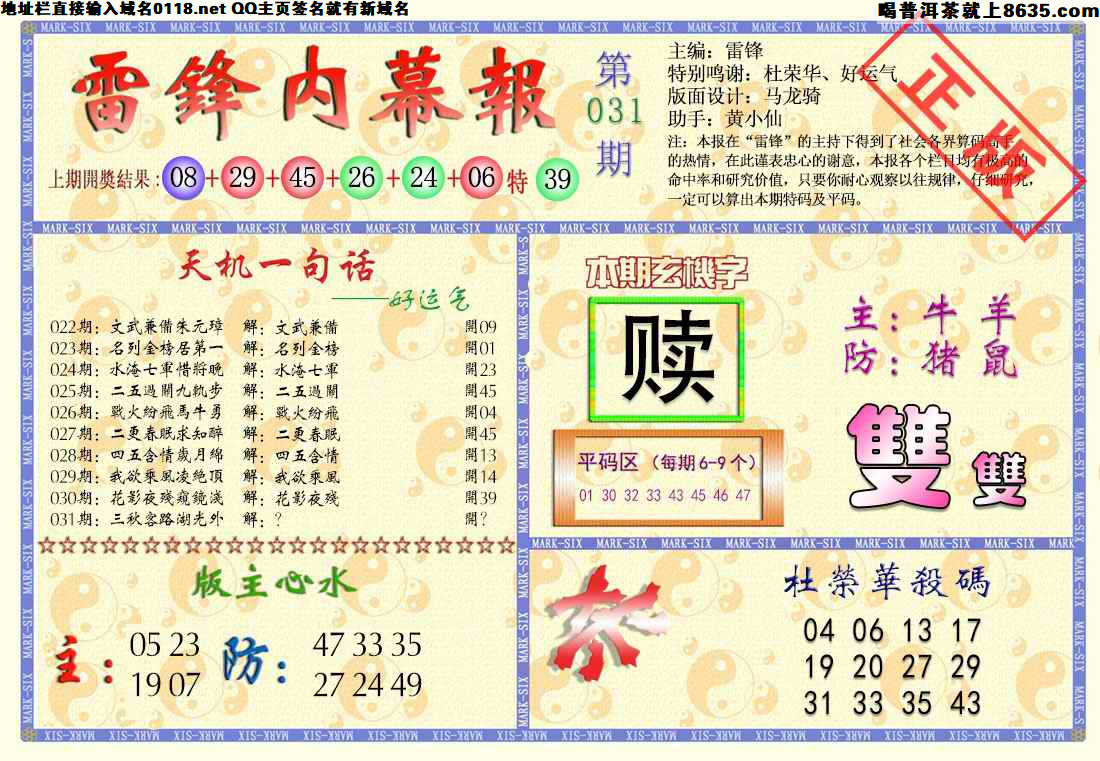 地址栏直接输入域名0118.net QQ主页签名就有新域名
喝普洱茶就上8635.com
MARK-SIX MARK-SIX MARK-SIX MARK-SIX MARK-SIX MARK-SIX MARK-SIX MARK-SIX MARK-SIX MARK-SIX MARK-SIX MARK-SIX MARK-SIX
雷锋内幕報
第
031
期
主编：雷锋
特别鸣谢：杜荣华、好运气
版面设计：马龙骑
助手：黄小仙
注：本报在“雷锋”的主持下得到了社会各界算码高手
的热情，在此谨表忠心的谢意，本报各个栏目均有极高的
命中率和研究价值，只要你耐心观察以往规律，仔细研究，
一定可以算出本期特码及平码。
正版
上期開獎結果：08+29+45+26+24+06特39
天机一句话
——好运气
022期：文武兼備朱元璋 解：文武兼備 開09
023期：名列金榜居第一 解：名列金榜 開01
024期：水淹七軍惜將晚 解：水淹七軍 開23
025期：二五過關九軌步 解：二五過關 開45
026期：戰火紛飛馬牛勇 解：戰火紛飛 開04
027期：二更春眠求知醉 解：二更春眠 開45
028期：四五含情歲月綿 解：四五含情 開13
029期：我欲乘風凌絶頂 解：我欲乘風 開14
030期：花影夜殘窺鏡淺 解：花影夜殘 開39
031期：三秋客路湖光外 解：？ 開？
本期玄機字
赎
主：牛 羊
防：猪 鼠
雙 雙
平码区（每期6-9个）
01 30 32 33 43 45 46 47
☆☆☆☆☆☆☆☆☆☆☆☆☆☆☆☆☆☆☆☆☆☆☆
版主心水
主：
05 23
19 07
防：
47 33 35
27 24 49
杀
杜榮華殺碼
04 06 13 17
19 20 27 29
31 33 35 43